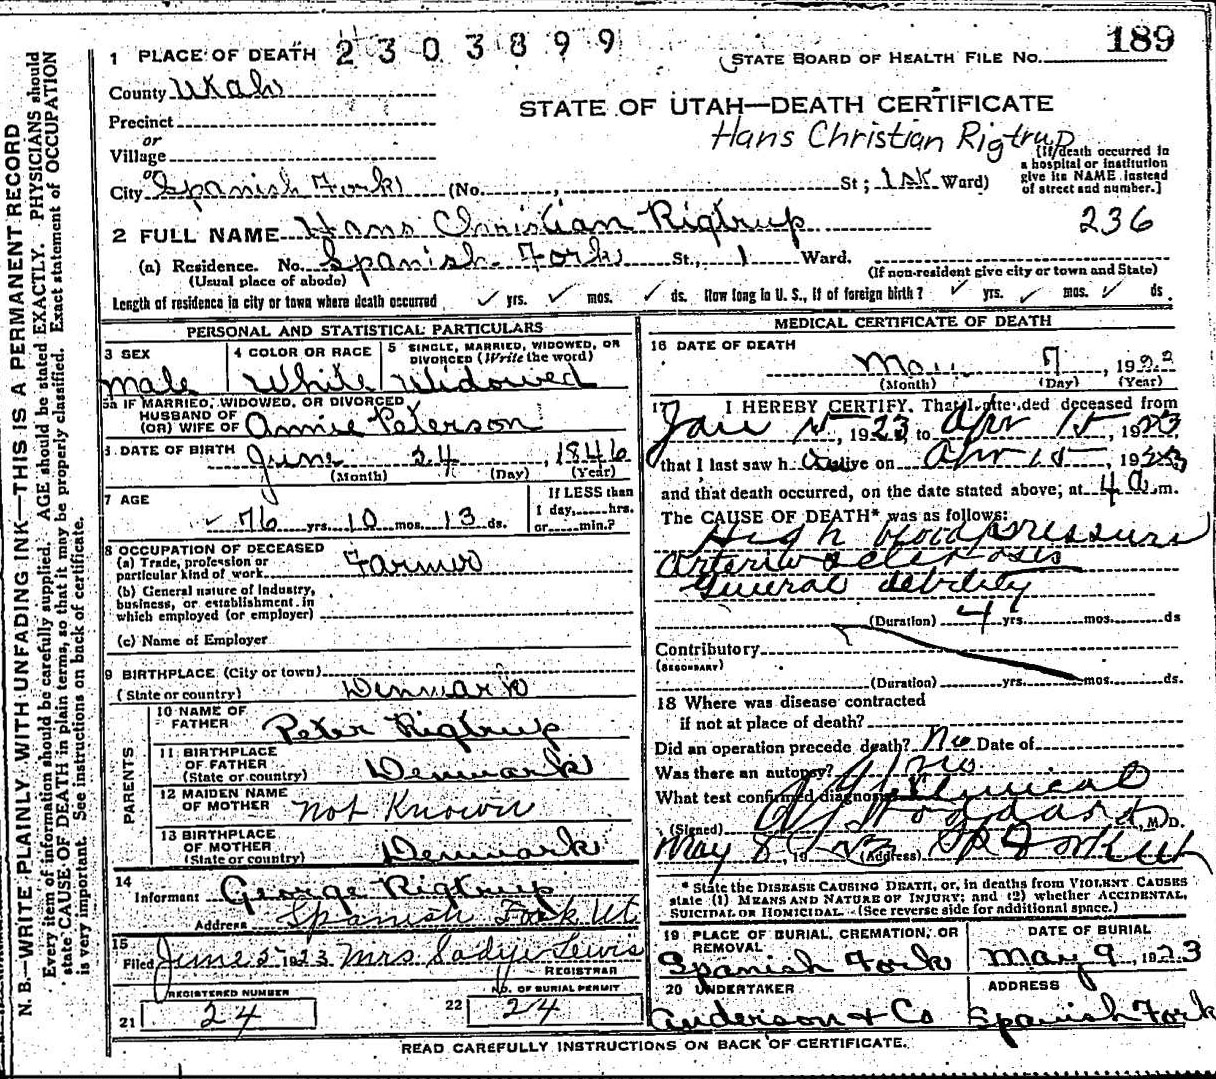 189
1 PLACE OF DEATH 2303899
STATE BOARD OF HEALTH FILE NO.
County Utah
STATE OF UTAH—DEATH CERTIFICATE
Precinct
Hans Christian Rigtrup
or
Village
(If death occurred in a hospital or institution give its NAME instead of street and number.]
or
City Spanish Fork (No. , St; 1st Ward)
236
2 FULL NAME Hans Christian Rigtrup
(a) Residence. No. Spanish Fork St., 1 Ward.
(Usual place of abode) (If non-resident give city or town and State)
Length of residence in city or town where death occurred yrs. mos. ds. How long in U. S., if of foreign birth? yrs. mos. ds.
PERSONAL AND STATISTICAL PARTICULARS
3 SEX
Male
4 COLOR OR RACE
White
5 SINGLE, MARRIED, WIDOWED, OR DIVORCED (Write the word)
Widowed
5a IF MARRIED, WIDOWED, OR DIVORCED
HUSBAND OF
(OR) WIFE OF Annie Peterson
DATE OF BIRTH June 24, 1846
(Month) (Day) (Year)
7 AGE
76 yrs. 10 mos. 13 ds.
If LESS than
1 day, hrs.
or min.?
8 OCCUPATION OF DECEASED
(a) Trade, profession or
particular kind of work Farmer
(b) General nature of industry,
business, or establishment in
which employed (or employer)
(c) Name of Employer
9 BIRTHPLACE (City or town)
(State or country) Denmark
PARENTS
10 NAME OF
FATHER Peter Rigtrup
11 BIRTHPLACE
OF FATHER
(State or country) Denmark
12 MAIDEN NAME
OF MOTHER Not Known
13 BIRTHPLACE
OF MOTHER
(State or country) Denmark
14
Informant George Rigtrup
Address Spanish Fork Ut
15
Filed June 5 1923 Mrs Sadye Lewis
REGISTRAR
REGISTERED NUMBER
21 24
NO. OF BURIAL PERMIT
22 24
MEDICAL CERTIFICATE OF DEATH
16 DATE OF DEATH
May 7, 192
(Month) (Day) (Year)
17 I HEREBY CERTIFY, That I attended deceased from
Jan 15, 1923, to Apr 15, 1923,
that I last saw h alive on Apr 15, 1923
and that death occurred, on the date stated above; at 4 a.m.
The CAUSE OF DEATH* was as follows:
High blood pressure
Arterio sclerosis
General debility
(Duration) 4 yrs. mos. ds
Contributory
(SECONDARY)
(Duration) yrs. mos. ds.
18 Where was disease contracted
if not at place of death?
Did an operation precede death? No Date of
Was there an autopsy? No
What test confirmed diagnosis? Clinical
(Signed) Stoddard, M. D.
May 8, 1923 (Address) Sp Fork Ut
* State the DISEASE CAUSING DEATH, or, in deaths from VIOLENT CAUSES
state (1) MEANS AND NATURE OF INJURY; and (2) whether ACCIDENTAL,
SUICIDAL OR HOMICIDAL. (See reverse side for additional space.)
19 PLACE OF BURIAL, CREMATION, OR
REMOVAL
Spanish Fork
DATE OF BURIAL
May 9, 1923
20 UNDERTAKER
Anderson & Co
ADDRESS
Spanish Fork
READ CAREFULLY INSTRUCTIONS ON BACK OF CERTIFICATE.
N. B.—WRITE PLAINLY WITH UNFADING INK—THIS IS A PERMANENT RECORD
Every item of information should be carefully supplied. AGE should be stated EXACTLY. PHYSICIANS should
state CAUSE OF DEATH in plain terms, so that it may be properly classified. Exact statement of OCCUPATION
is very important. See instructions on back of certificate.